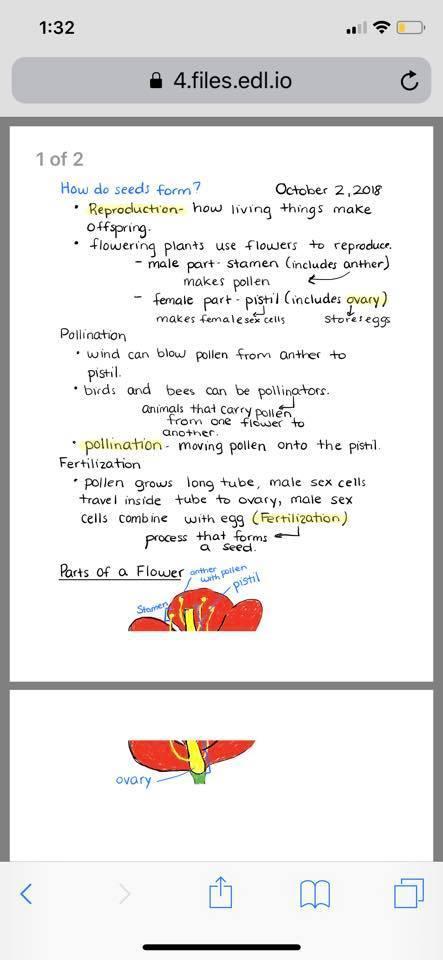 1:32
4.files.edl.io
1 of 2
How do seeds form? October 2, 2018
• Reproduction- how living things make
offspring.
• flowering plants use flowers to reproduce.
- male part- stamen (includes anther)
makes pollen
- female part - pistil (includes ovary)
makes female sex cells stores eggs
Pollination
• wind can blow pollen from anther to
pistil.
• birds and bees can be pollinators.
animals that carry pollen
from one flower to
another.
• pollination - moving pollen onto the pistil.
Fertilization
• pollen grows long tube, male sex cells
travel inside tube to ovary, male sex
cells combine with egg (Fertilization)
process that forms
a seed.
Parts of a Flower
anther
with pollen
pistil
Stamen
ovary